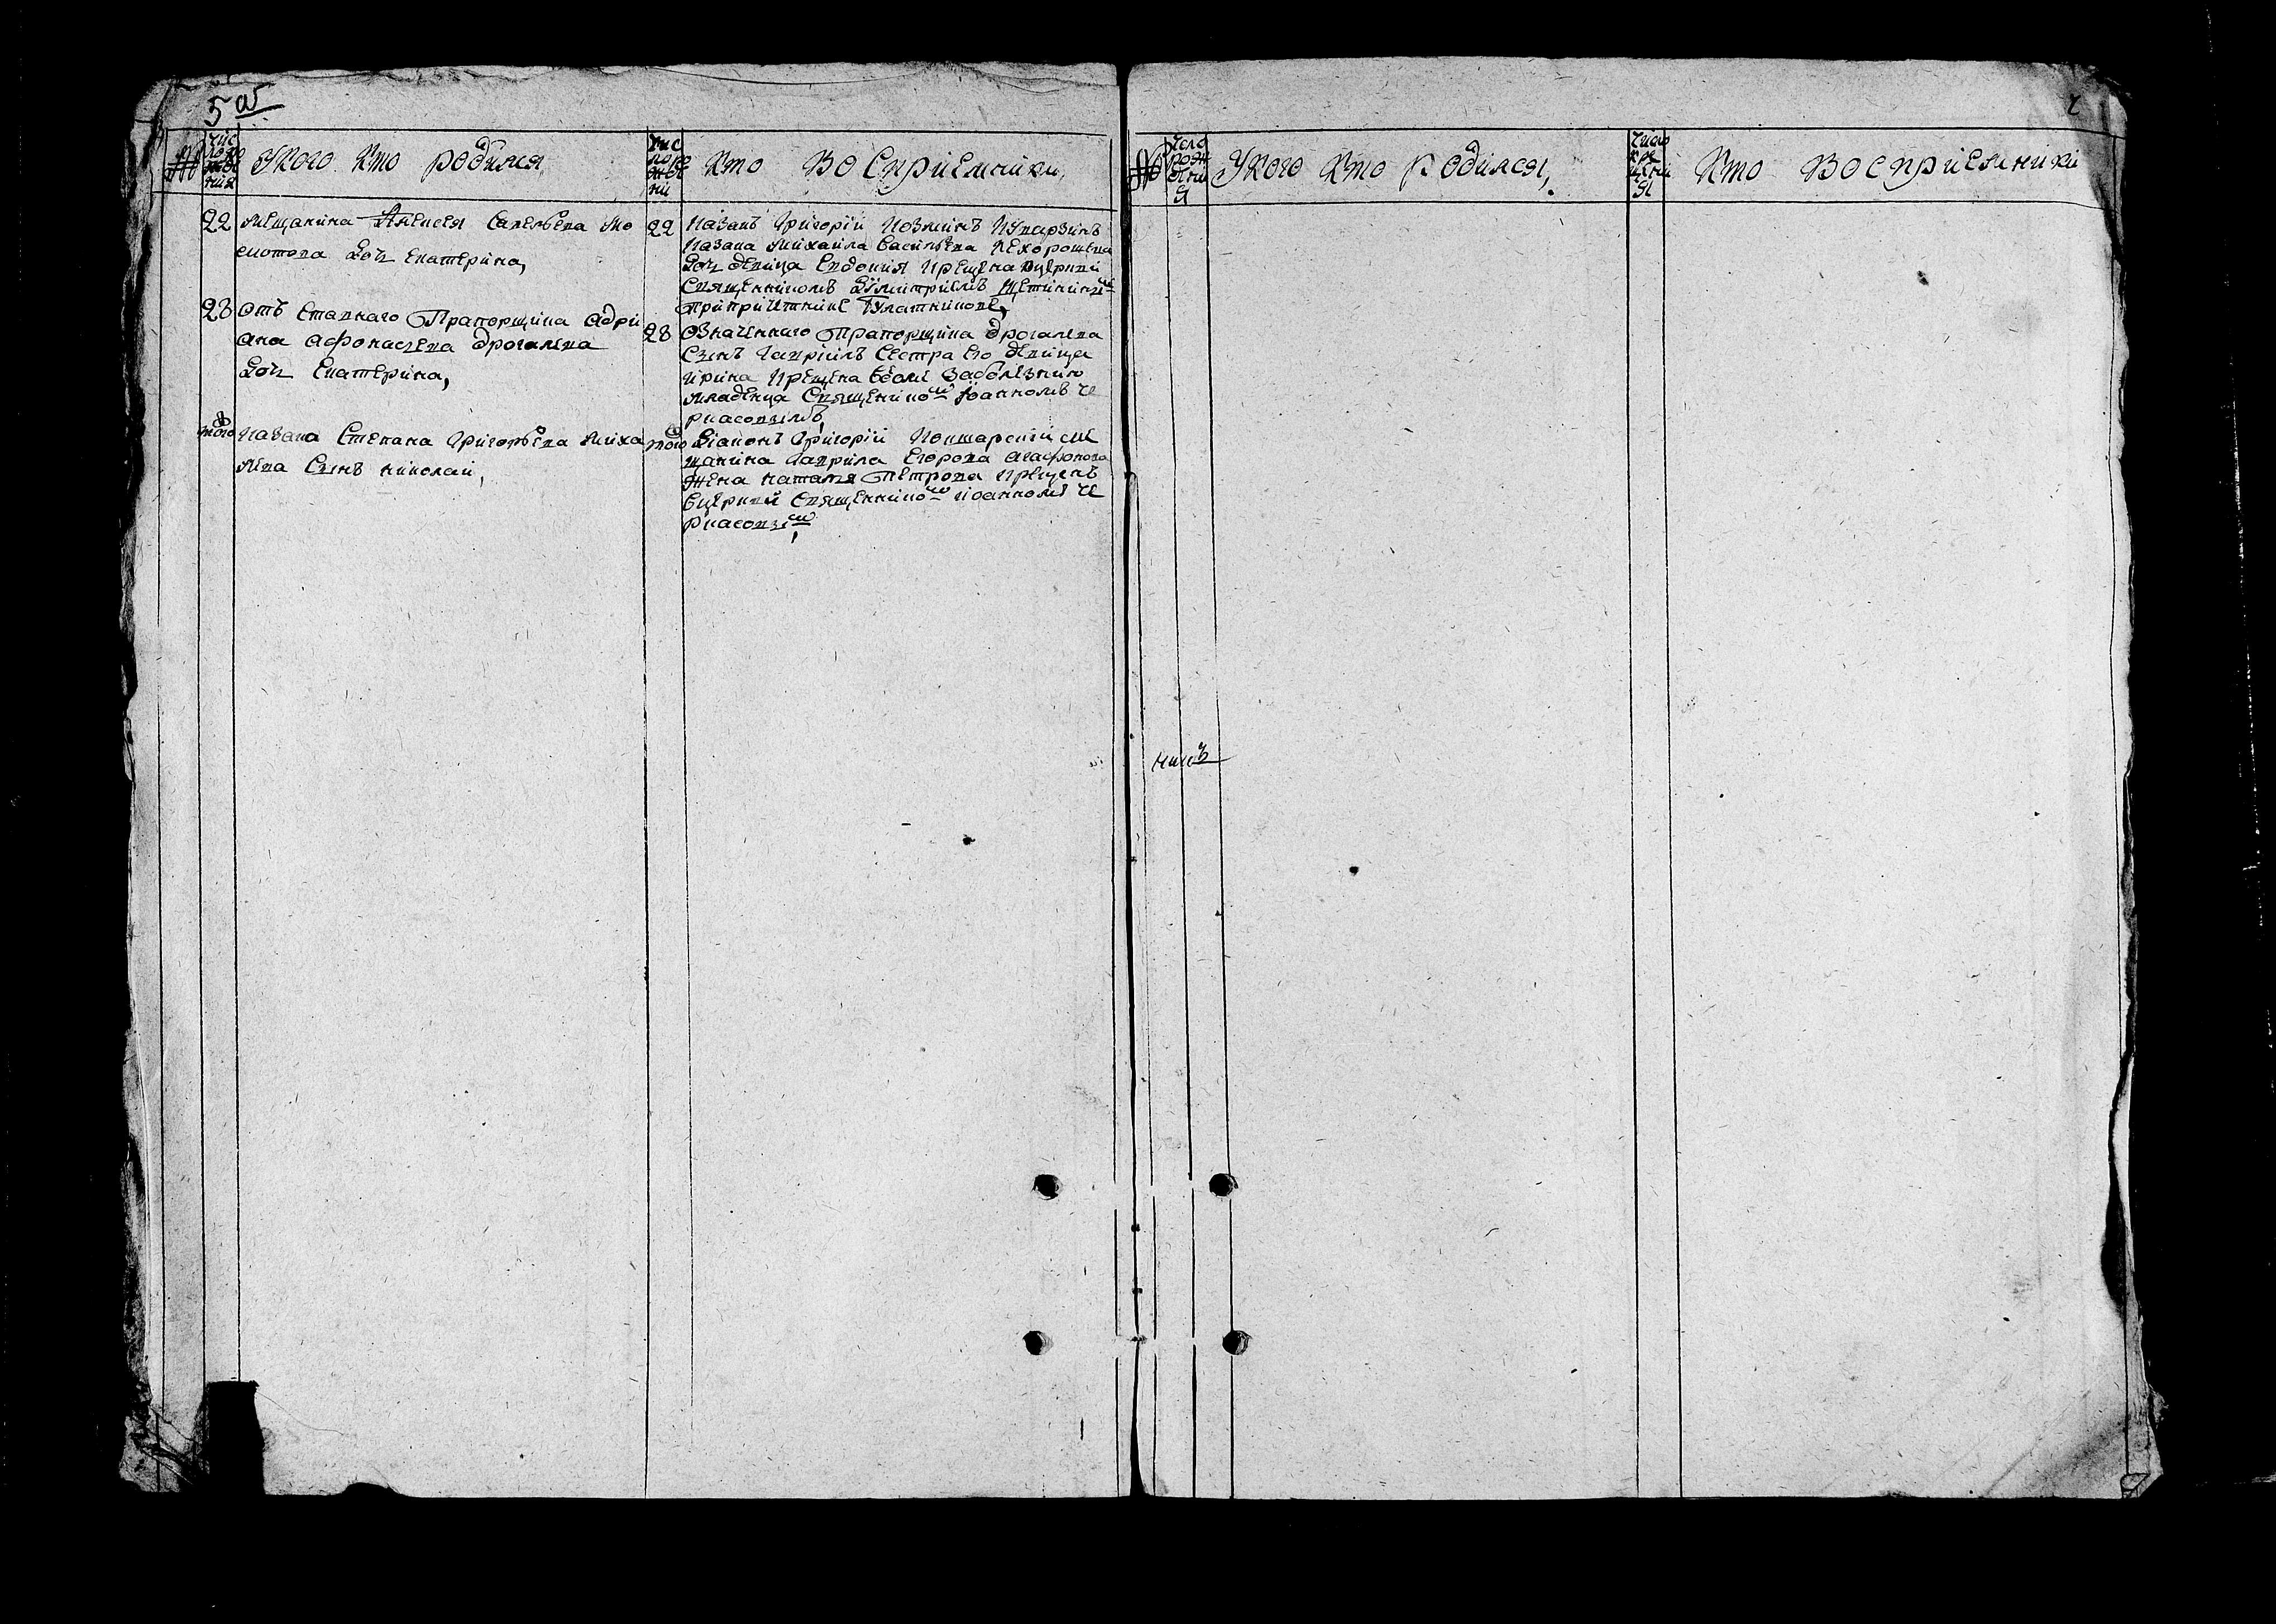 5 об
№ Чис ло рож де ния Укого Кто родился Чис ло кре ще ний Кто Восприемники,
22 мещанина Алексея Савельева Мо
лотова дочь Екатерина,
22 казакъ Григорий Козминъ
казака Михаила Васильева Нехорошева
дочь девица Евдокия Крещена вцеркви
Священникомъ Димитриемъ
Припричетнике
28 Отъ Ставнаго Прапорщика Адри
ана Афонасьева Дрогалева
дочь Екатерина,
28 Означеннаго Прапорщика Дрогалева
Сынъ Гаврiилъ Сестра Его девица
Ирина Крещена Вдоме Заболезнию
младенца Священнико м Иоанномъ Че
ркасовымъ,
того казака Степана Григорьева Миха
лева Сынъ Николай,
того Дiаконъ Григорiй ме
щанина Гаврила Егорова Агафонова
Жена Наталя Петрова Крещенъ
Вцеркви Священнико м Иоанномъ Че
ркасовы м,
№ Число рож дени я Укого Кто Родился, Число кре щени я Кто Восприемники